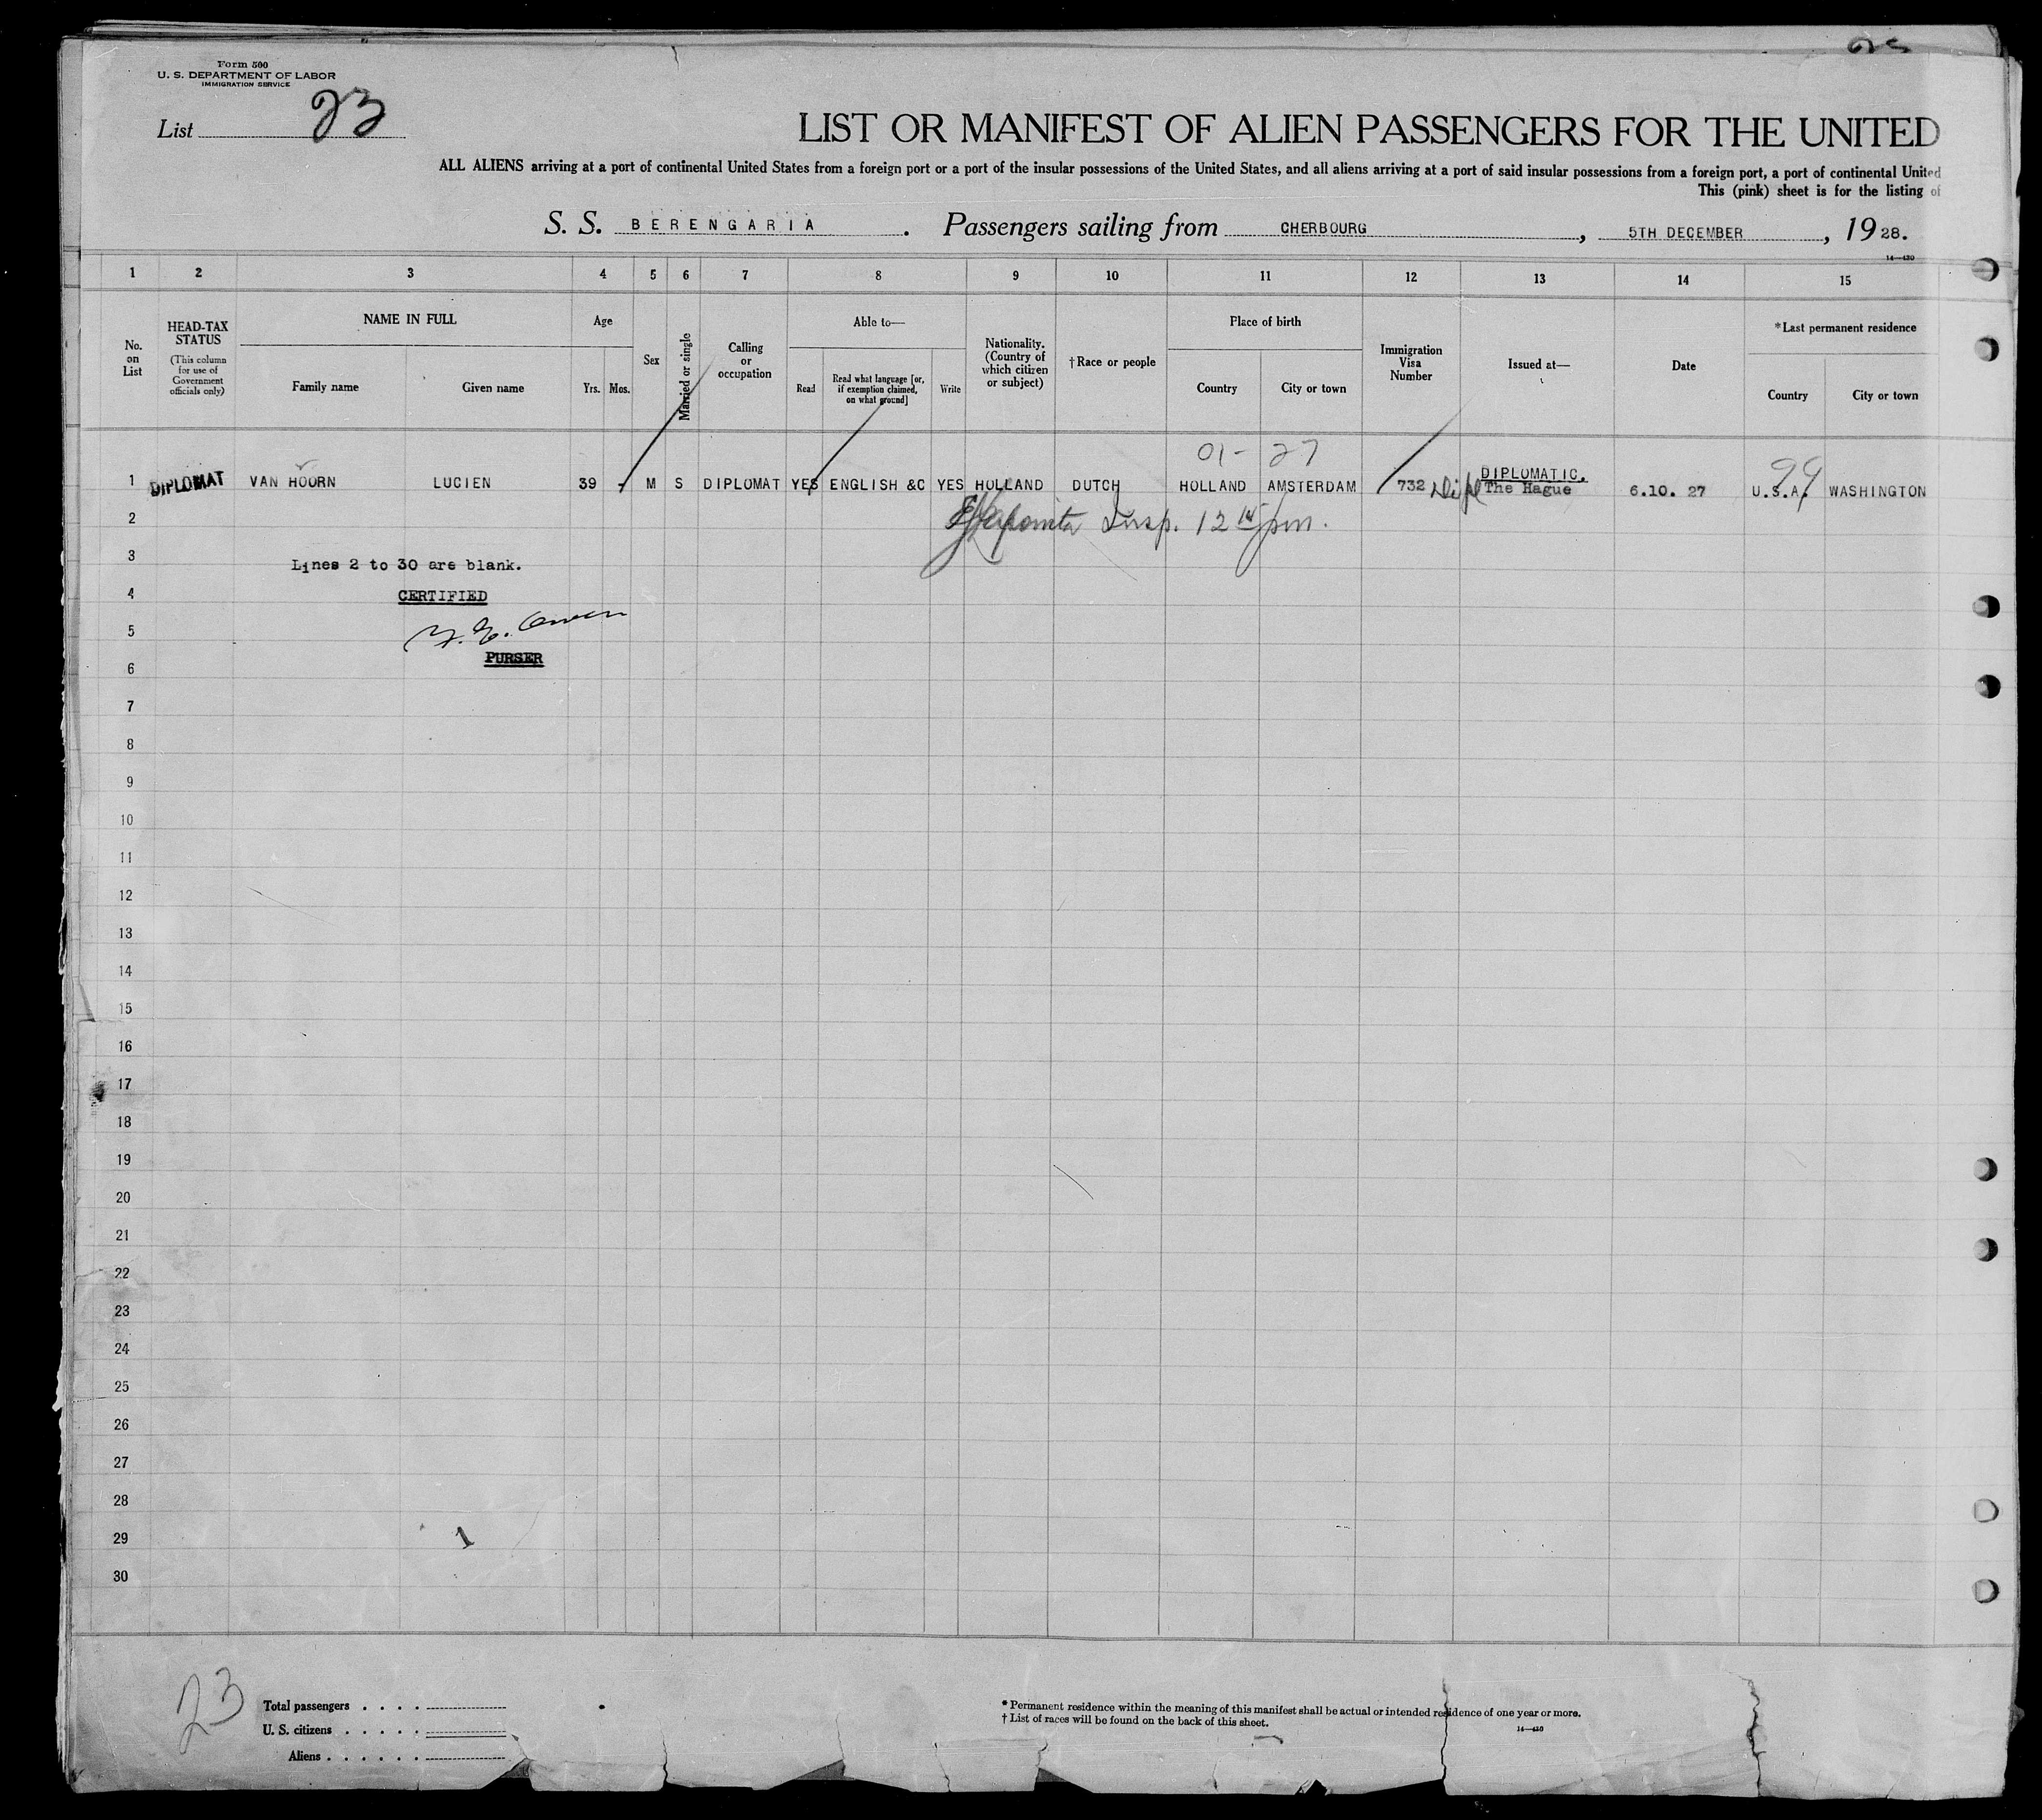 Form 500
U. S. DEPARTMENT OF LABOR
IMMIGRATION SERVICE
List 23
LIST OR MANIFEST OF ALIEN PASSENGERS FOR THE UNITED
ALL ALIENS arriving at a port of continental United States from a foreign port or a port of the insular possessions of the United States, and all aliens arriving at a port of said insular possessions from a foreign port, a port of continental United
This (pink) sheet is for the listing of
S. S. BERENGARIA. Passengers sailing from CHERBOURG, 5TH DECEMBER, 1928.
14—430
1 2 3 4 5 6 7 8 9 10 11 12 13 14 15
No. on List
HEAD-TAX STATUS
(This column for use of Government officials only)
NAME IN FULL
Family name Given name
Age
Yrs. Mos.
Sex
Married or single
Calling or occupation
Able to—
Read
Read what language [or, if exemption claimed, on what ground]
Write
Nationality. (Country of which citizen or subject)
†Race or people
Place of birth
Country City or town
Immigration Visa Number
Issued at—
Date
*Last permanent residence
Country City or town
01- 27
99
1 DIPLOMAT VAN HOORN LUCIEN 39 - M S DIPLOMAT YES ENGLISH &C YES HOLLAND DUTCH HOLLAND AMSTERDAM 732 Dipl DIPLOMATIC. The Hague 6.10. 27 U.S.A. WASHINGTON
2
Insp. 12 15 pm.
3
Lines 2 to 30 are blank.
4
CERTIFIED
5
6
PURSER
7
8
9
10
11
12
13
14
15
16
17
18
19
20
21
22
23
24
25
26
27
28
29
1
30
23
Total passengers . . . .
U. S. citizens . . . . .
Aliens . . . . . .
* Permanent residence within the meaning of this manifest shall be actual or intended residence of one year or more.
† List of races will be found on the back of this sheet.
14—430